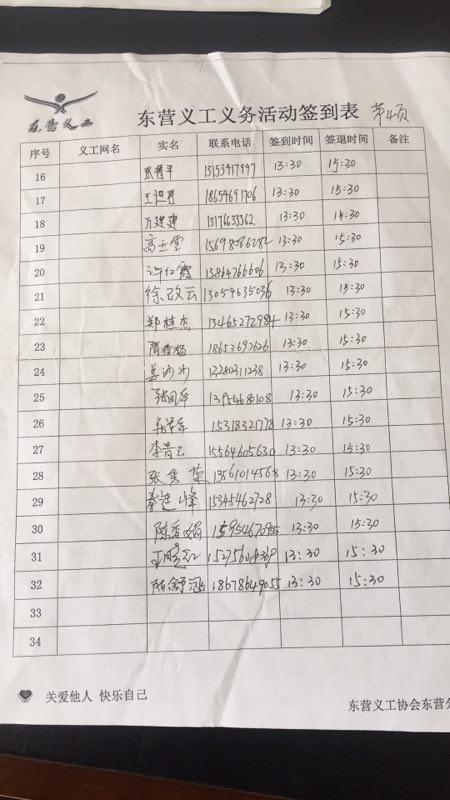 东营义工
东营义工义务活动签到表 第4页
序号 义工网名 实名 联系电话 签到时间 签退时间 备注
16 13:30 15:30
17 18654691706 13:30 15:30
18 万建建 13176633362 13:30 15:30
19 高玉雪 13:30 15:30
20 许红霞 13864766606 13:30 15:30
21 徐改云 13054635036 13:30 15:30
22 郑桂杰 13465272984 13:30 15:30
23 18653692626 13:30 15:30
24 姜沙沙 13280311238 13:30 15:30
25 13954680108 13:30 15:30
26 15318321778 13:30 15:30
27 15564605630 13:30 15:30
28 张秀荣 13561014568 13:30 15:30
29 秦连峰 15345462728 13:30 15:30
30 陈香娟 13:30 15:30
31 13:30 15:30
32 18678649055 13:30 15:30
33
34
关爱他人 快乐自己
东营义工协会东营分